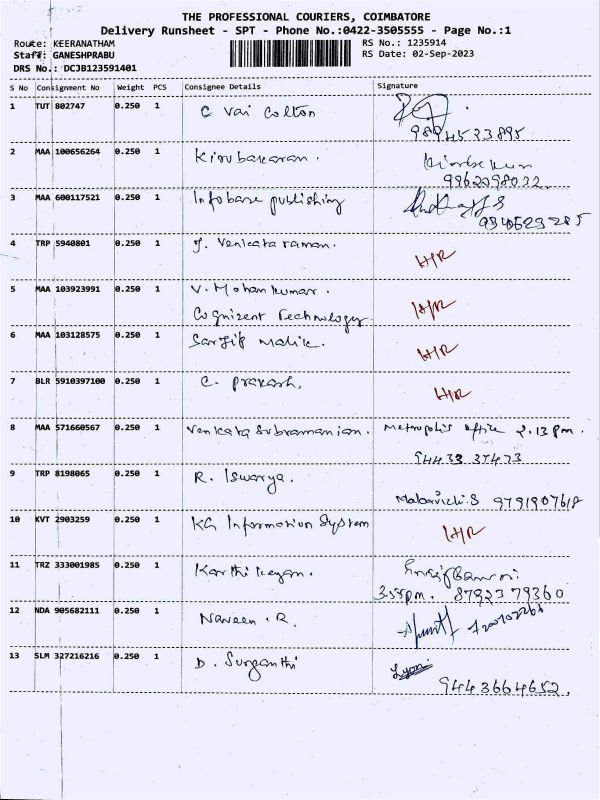 THE PROFESSIONAL COURIERS, COIMBATORE
Delivery Runsheet - SPT - Phone No.:0422-3505555 - Page No.:1
Route: KEERANATHAM
RS No.: 1235914
Staff: GANESHPRABU
RS Date: 02-Sep-2023
DRS No.: DCJB123591401
S No Consignment No Weight PCS Consignee Details Signature
1 TUT 802747 0.250 1 C Vai Colton
2 MAA 100656264 0.250 1 Kirubakaran.
3 MAA 600117521 0.250 1 Infobase publishing
4 TRP 5940801 0.250 1 J. Venkata raman. H/R
5 MAA 103923991 0.250 1 V. Mohan kumar. H/R
Cognizent Technology
6 MAA 103128575 0.250 1 Malik. H/R
7 BLR 5910397100 0.250 1 C. Prakash. H/R
8 MAA 571660567 0.250 1 Venkata Subramanian. Metropolis office 2.13 pm.
94433 37473
9 TRP 8198065 0.250 1 R. Iswarya.
9791907618
10 KVT 2903259 0.250 1 KG Information System H/R
11 TRZ 333001985 0.250 1 Karthikeyan.
3.55pm. 8792379360
12 NDA 905682111 0.250 1 Naveen. R.
13 SLM 327216216 0.250 1 D. Suganthi
9443664652.